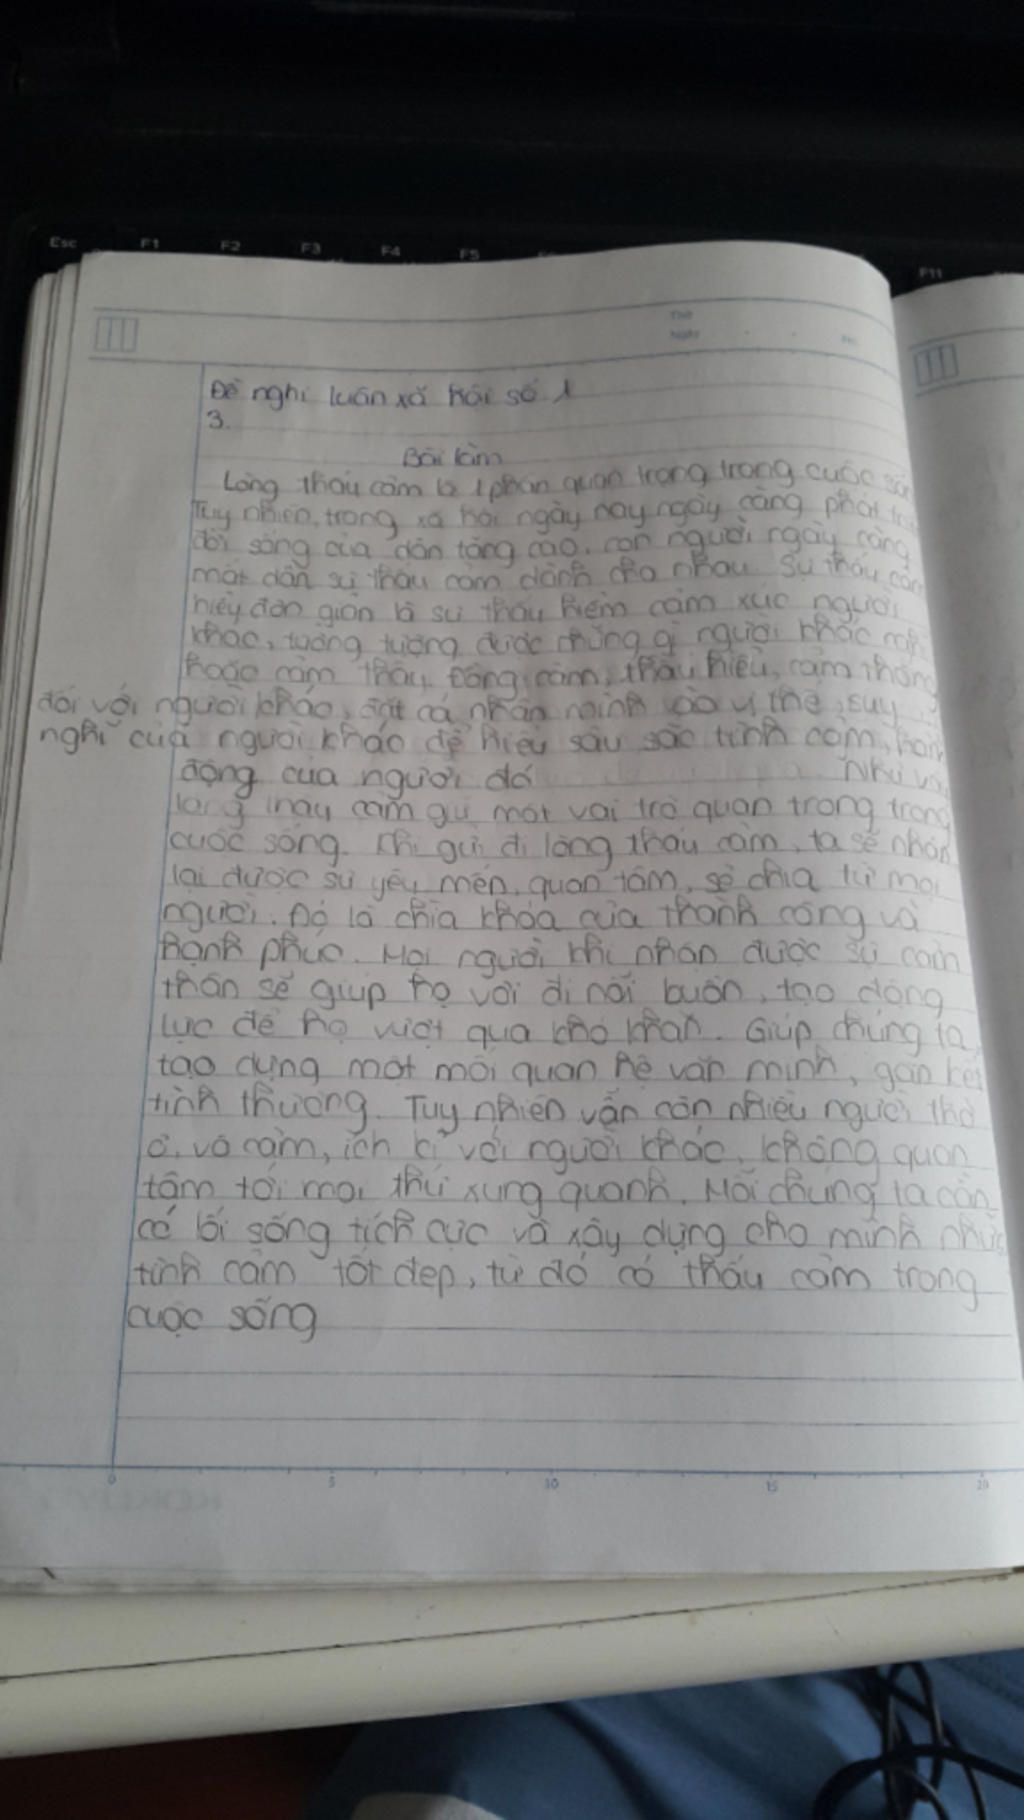 Esc F1 F2 F3 F4 F5 F11
Thứ
Ngày
Đề nghị luận xã hội số 1
3.
Bài làm
Lòng thấu cảm là 1 phần quan trọng trong cuộc
Tuy nhiên, trong xã hội ngày nay ngày càng phát
đời sống của dân tăng cao, con người ngày càng
mất dần sự thấu cảm dành cho nhau. Sự thấu cảm
hiểu đơn giản là sự thấu hiểm cảm xúc người
khác, tưởng tượng được những gì người khác
hoặc cảm thấy. Đồng cảm, thấu hiểu, cảm thông
đối với người khác, đặt cá nhân mình vào vị thế, suy
nghĩ của người khác để hiểu sâu sắc tình cảm, hành
động của người đó Như vậy
cảm giữ một vai trò quan trọng trong
cuộc sống. Khi gửi đi lòng thấu cảm, ta sẽ nhận
lại được sự yêu mến, quan tâm, sẻ chia từ mọi
người. Đó là chìa khóa của thành công và
hạnh phúc. Mọi người khi nhận được sự cảm
thân sẽ giúp họ vơi đi nỗi buồn, tạo động
lực để họ vượt qua khó khăn. Giúp chúng ta
tạo dựng một mối quan hệ văn minh, gắn kết
tình thương. Tuy nhiên vẫn còn nhiều người thờ
ơ, vô cảm, ích kỉ với người khác, không quan
tâm tới mọi thứ xung quanh. Mỗi chúng ta cần
có lối sống tích cực và xây dựng cho mình những
tình cảm tốt đẹp, từ đó có thấu cảm trong
cuộc sống
0 5 10 15 20